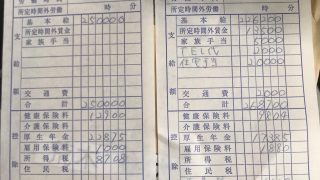 所定時間外労働 時 分
基本給 250000
所定時間外賃金
家族手当
支
給
額
交通費
合計 250000
健康保険料 12900
介護保険料
控
除
厚生年金 22875
雇用保険料 1000
所得税 8708
住民税
所定時間外労働 時 分
基本給 226200
所定時間外賃金 13500
家族手当 5000
2000
住宅手当 20000
支
給
額
交通費 2000
合計 268700
健康保険料 9804
介護保険料
控
除
厚生年金 17385
雇用保険料 1880
所得税
住民税